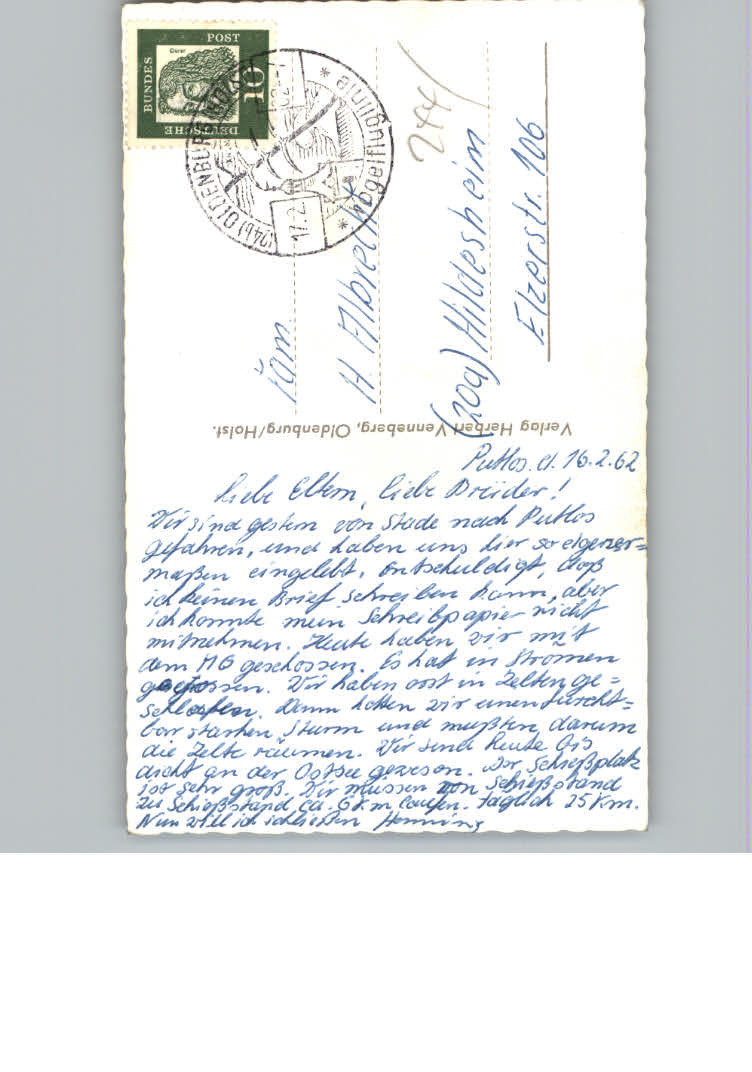 DEUTSCHE
BUNDES
POST
Dürer
10
(24b) OLDENBURG (HOLST)
17.2.
* Vogelfluglinie *
244/
Fam.
H. Albrecht
(20a) Hildesheim
Elzerstr. 106
Verlag Herbert Venneberg, Oldenburg/Holst.
Putlos. d. 16.2.62
Liebe Eltern, liebe Brüder!
Wir sind gestern von Stade nach Putlos
gefahren, und haben uns hier so eigener=
maßen eingelebt. Entschuldigt, daß
ich keinen Brief schreiben kann, aber
ich konnte mein Schreibpapier nicht
mitnehmen. Heute haben wir mit
dem MG geschossen. Es hat in Strömen
gegossen. Wir haben erst in Zelten ge=
schlafen. Dann hatten wir einen furcht=
bar starken Sturm und mußten darum
die Zelte räumen. Wir sind heute bis
dicht an der Ostsee gewesen. Der Schießplatz
ist sehr groß. Wir müssen von Schießstand
zu Schießstand ca. 6 km laufen. Täglich 25 Km.
Nun will ich schliessen Henning